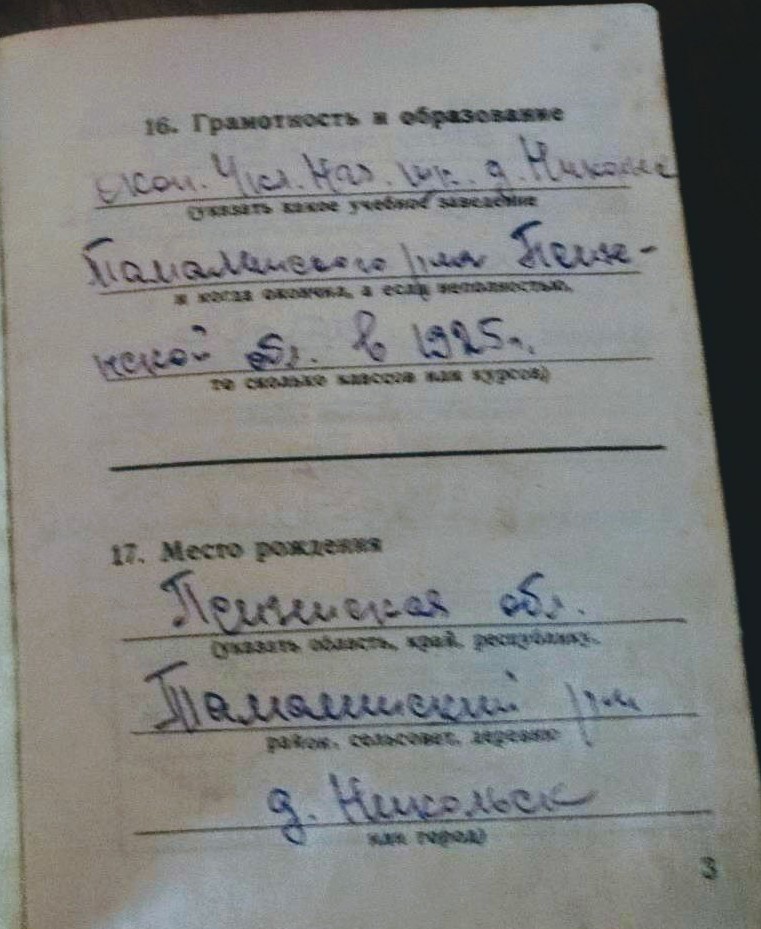 16. Грамотность и образование
окон. 4 кл. Нач. шк. д. Никольс
(указать какое учебное заведение
Тамалинского р-на Пензе-
и когда окончил, а если неполностью,
нской обл. в 1925 г.
то сколько классов или курсов)
17. Место рождения
Пензенская обл.
(указать область, край, республику,
Тамалинский р-н
район, сельсовет, деревню
д. Никольск
или город)
3